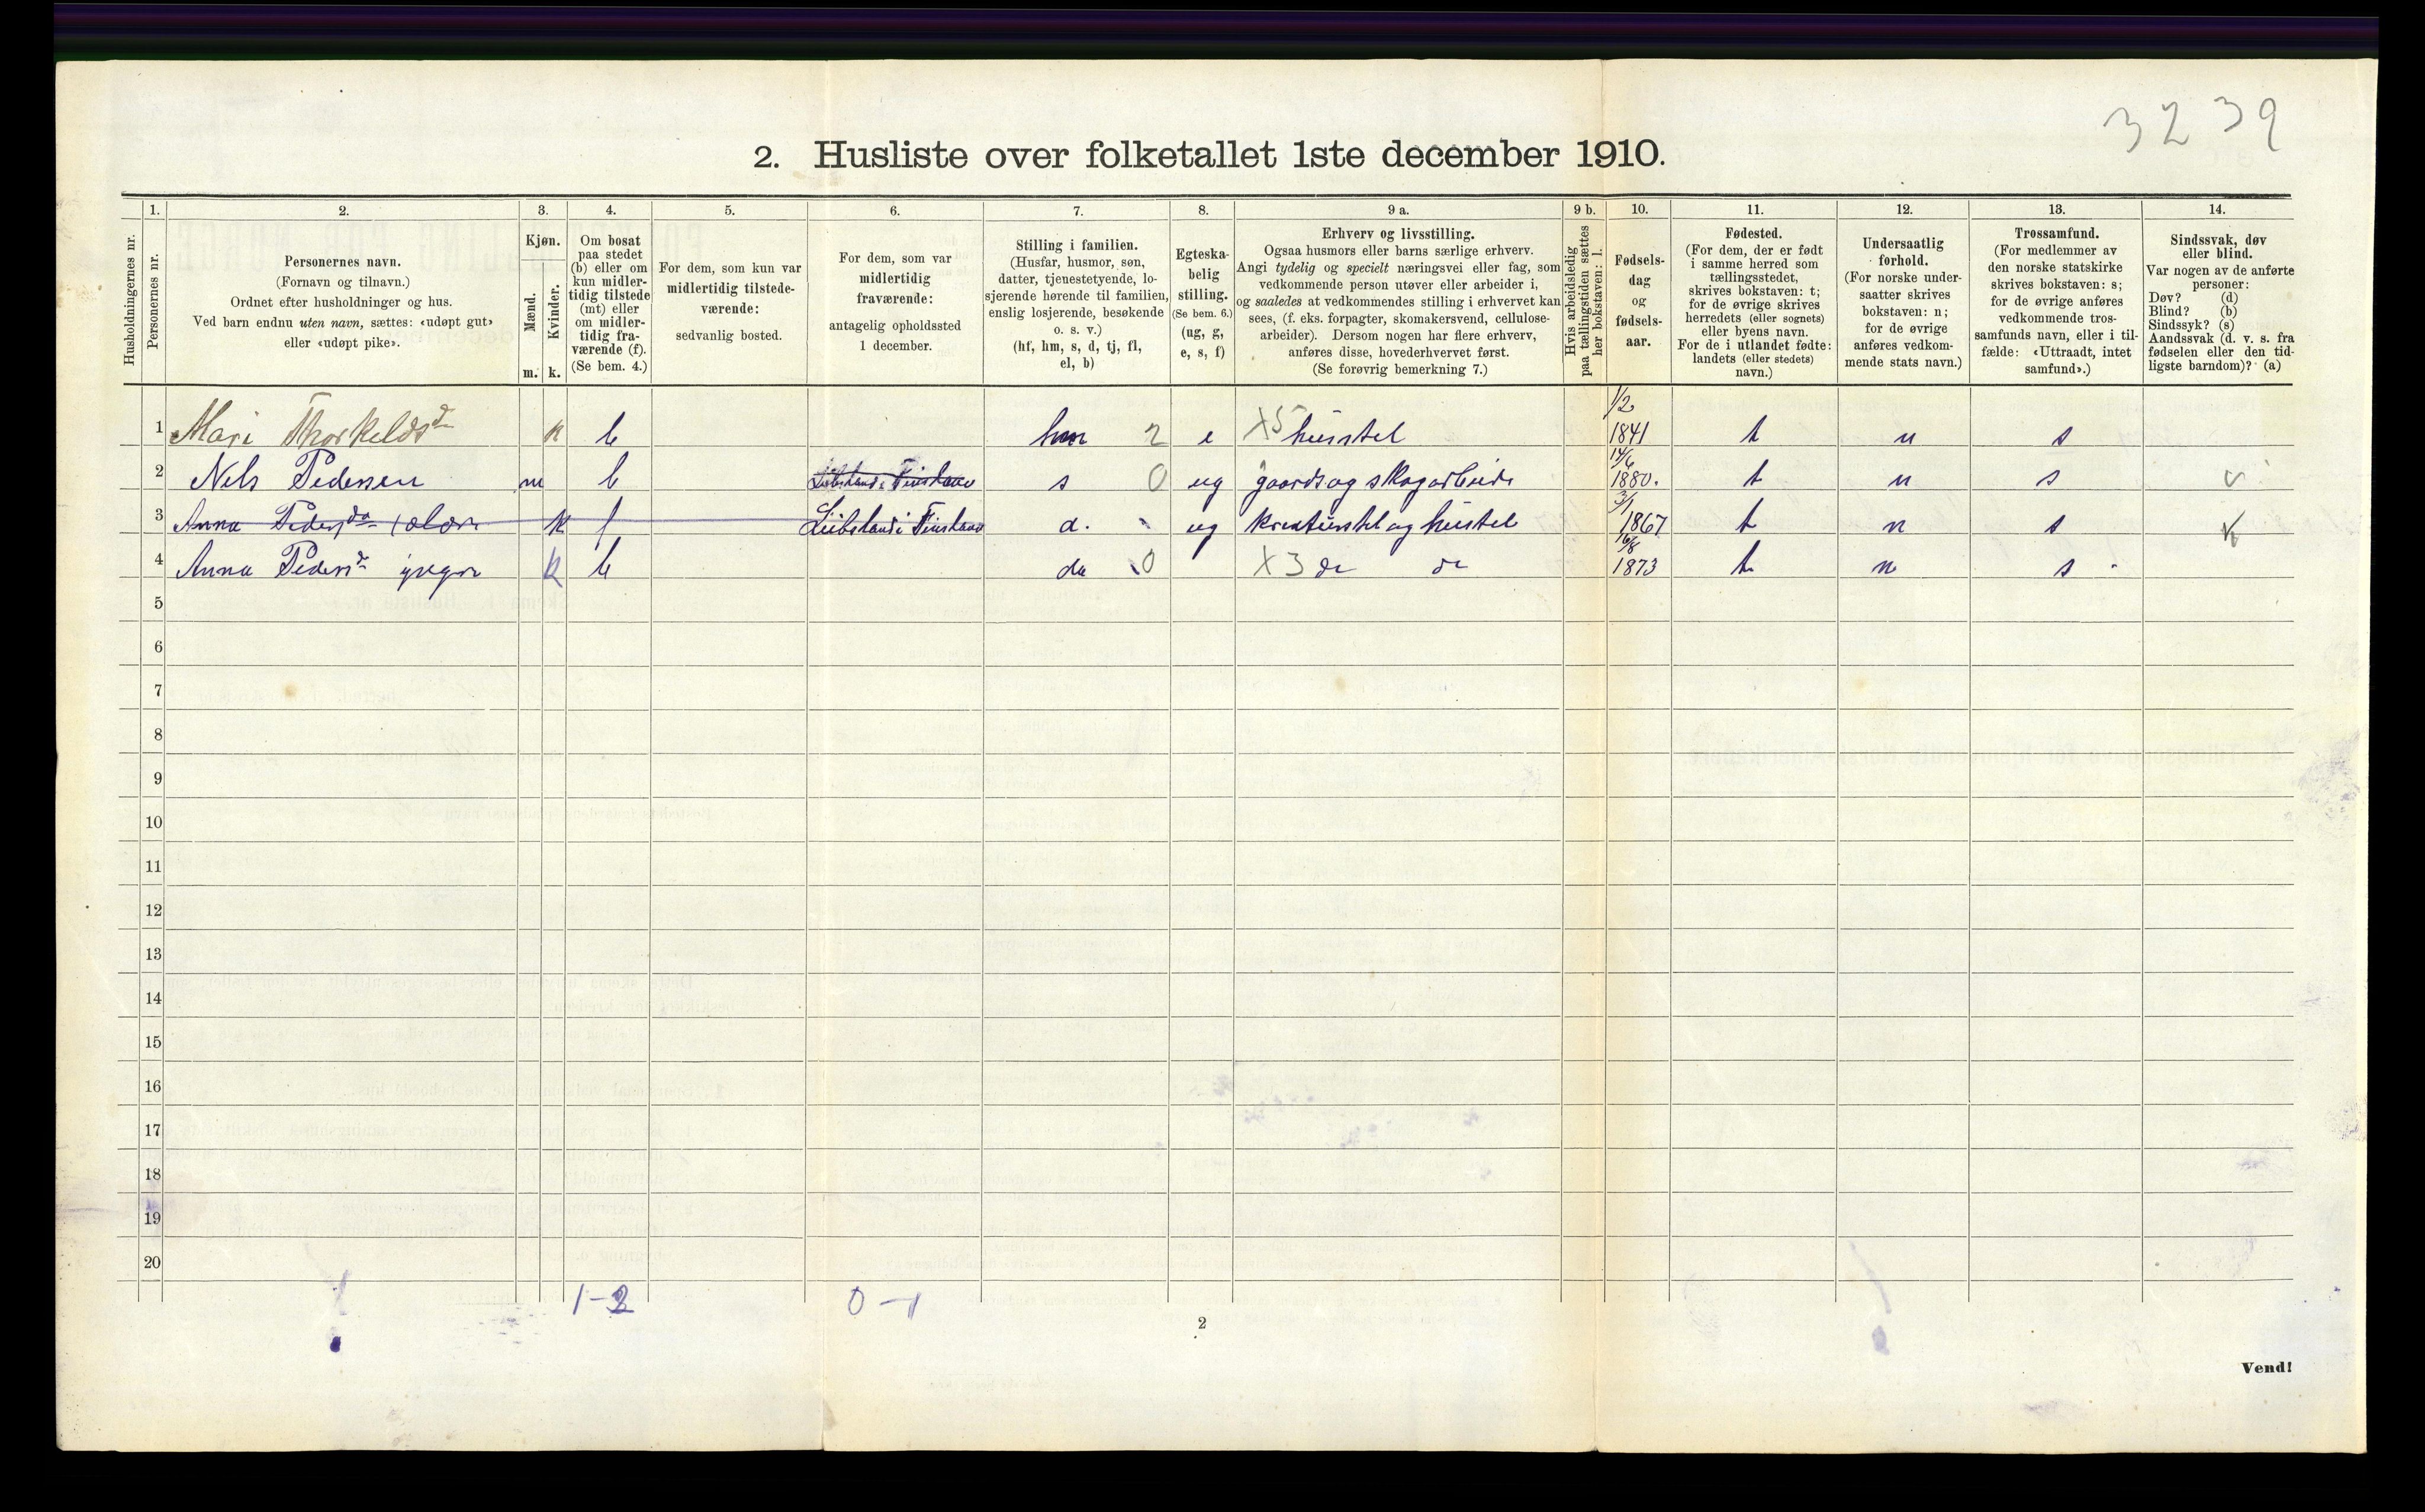 3239
2. Husliste over folketallet 1ste december 1910.
1. 2. 3. 4. 5. 6. 7. 8. 9 a. 9 b. 10. 11. 12. 13. 14.
Husholdningernes nr.
Personernes nr.
Personernes navn.
(Fornavn og tilnavn.)
Ordnet efter husholdninger og hus.
Ved barn endnu uten navn, sættes: «udøpt gut»
eller «udøpt pike».
Kjøn.
Mænd.
Kvinder.
m. k.
Om bosat
paa stedet
(b) eller om
kun midler-
tidig tilstede
(mt) eller
om midler-
tidig fra-
værende (f).
(Se bem. 4.)
For dem, som kun var
midlertidig tilstede-
værende:
sedvanlig bosted.
For dem, som var
midlertidig
fraværende:
antagelig opholdssted
1 december.
Stilling i familien.
(Husfar, husmor, søn,
datter, tjenestetyende, lo-
sjerende hørende til familien,
enslig losjerende, besøkende
o. s. v.)
(hf, hm, s, d, tj, fl,
el, b)
Egteska-
belig
stilling.
(Se bem. 6.)
(ug, g,
e, s, f)
Erhverv og livsstilling.
Ogsaa husmors eller barns særlige erhverv.
Angi tydelig og specielt næringsvei eller fag, som
vedkommende person utøver eller arbeider i,
og saaledes at vedkommendes stilling i erhvervet kan
sees, (f. eks. forpagter, skomakersvend, cellulose-
arbeider). Dersom nogen har flere erhverv,
anføres disse, hovederhvervet først.
(Se forøvrig bemerkning 7.)
Hvis arbeidsledig
paa tællingstiden sættes
her bokstaven: l.
Fødsels-
dag
og
fødsels-
aar.
Fødested.
(For dem, der er født
i samme herred som
tællingsstedet,
skrives bokstaven: t;
for de øvrige skrives
herredets (eller sognets)
eller byens navn.
For de i utlandet fødte:
landets (eller stedets)
navn.)
Undersaatlig
forhold.
(For norske under-
saatter skrives
bokstaven: n;
for de øvrige
anføres vedkom-
mende stats navn.)
Trossamfund.
(For medlemmer av
den norske statskirke
skrives bokstaven: s;
for de øvrige anføres
vedkommende tros-
samfunds navn, eller i til-
fælde: «Uttraadt, intet
samfund».)
Sindssvak, døv
eller blind.
Var nogen av de anførte
personer:
Døv? (d)
Blind? (b)
Sindssyk? (s)
Aandssvak (d. v. s. fra
fødselen eller den tid-
ligste barndom)? (a)
1 Mari Thorkeldsd k b hm 2 e X5 husstel 1/2 1841 t n s
2 Nels Pedersen m b s 0 ug gaards og skogarbeide 14/6 1880. t n s
3 Anna Pedersda k f d. ug kreaturstel og husstel 3/1 1867 t n s
4 Anna Pedersd yngre k b da 0 X3 do do 6/8 1873 t n s
5
6
7
8
9
10
11
12
13
14
15
16
17
18
19
20
1-2 0-1
2
Vend!